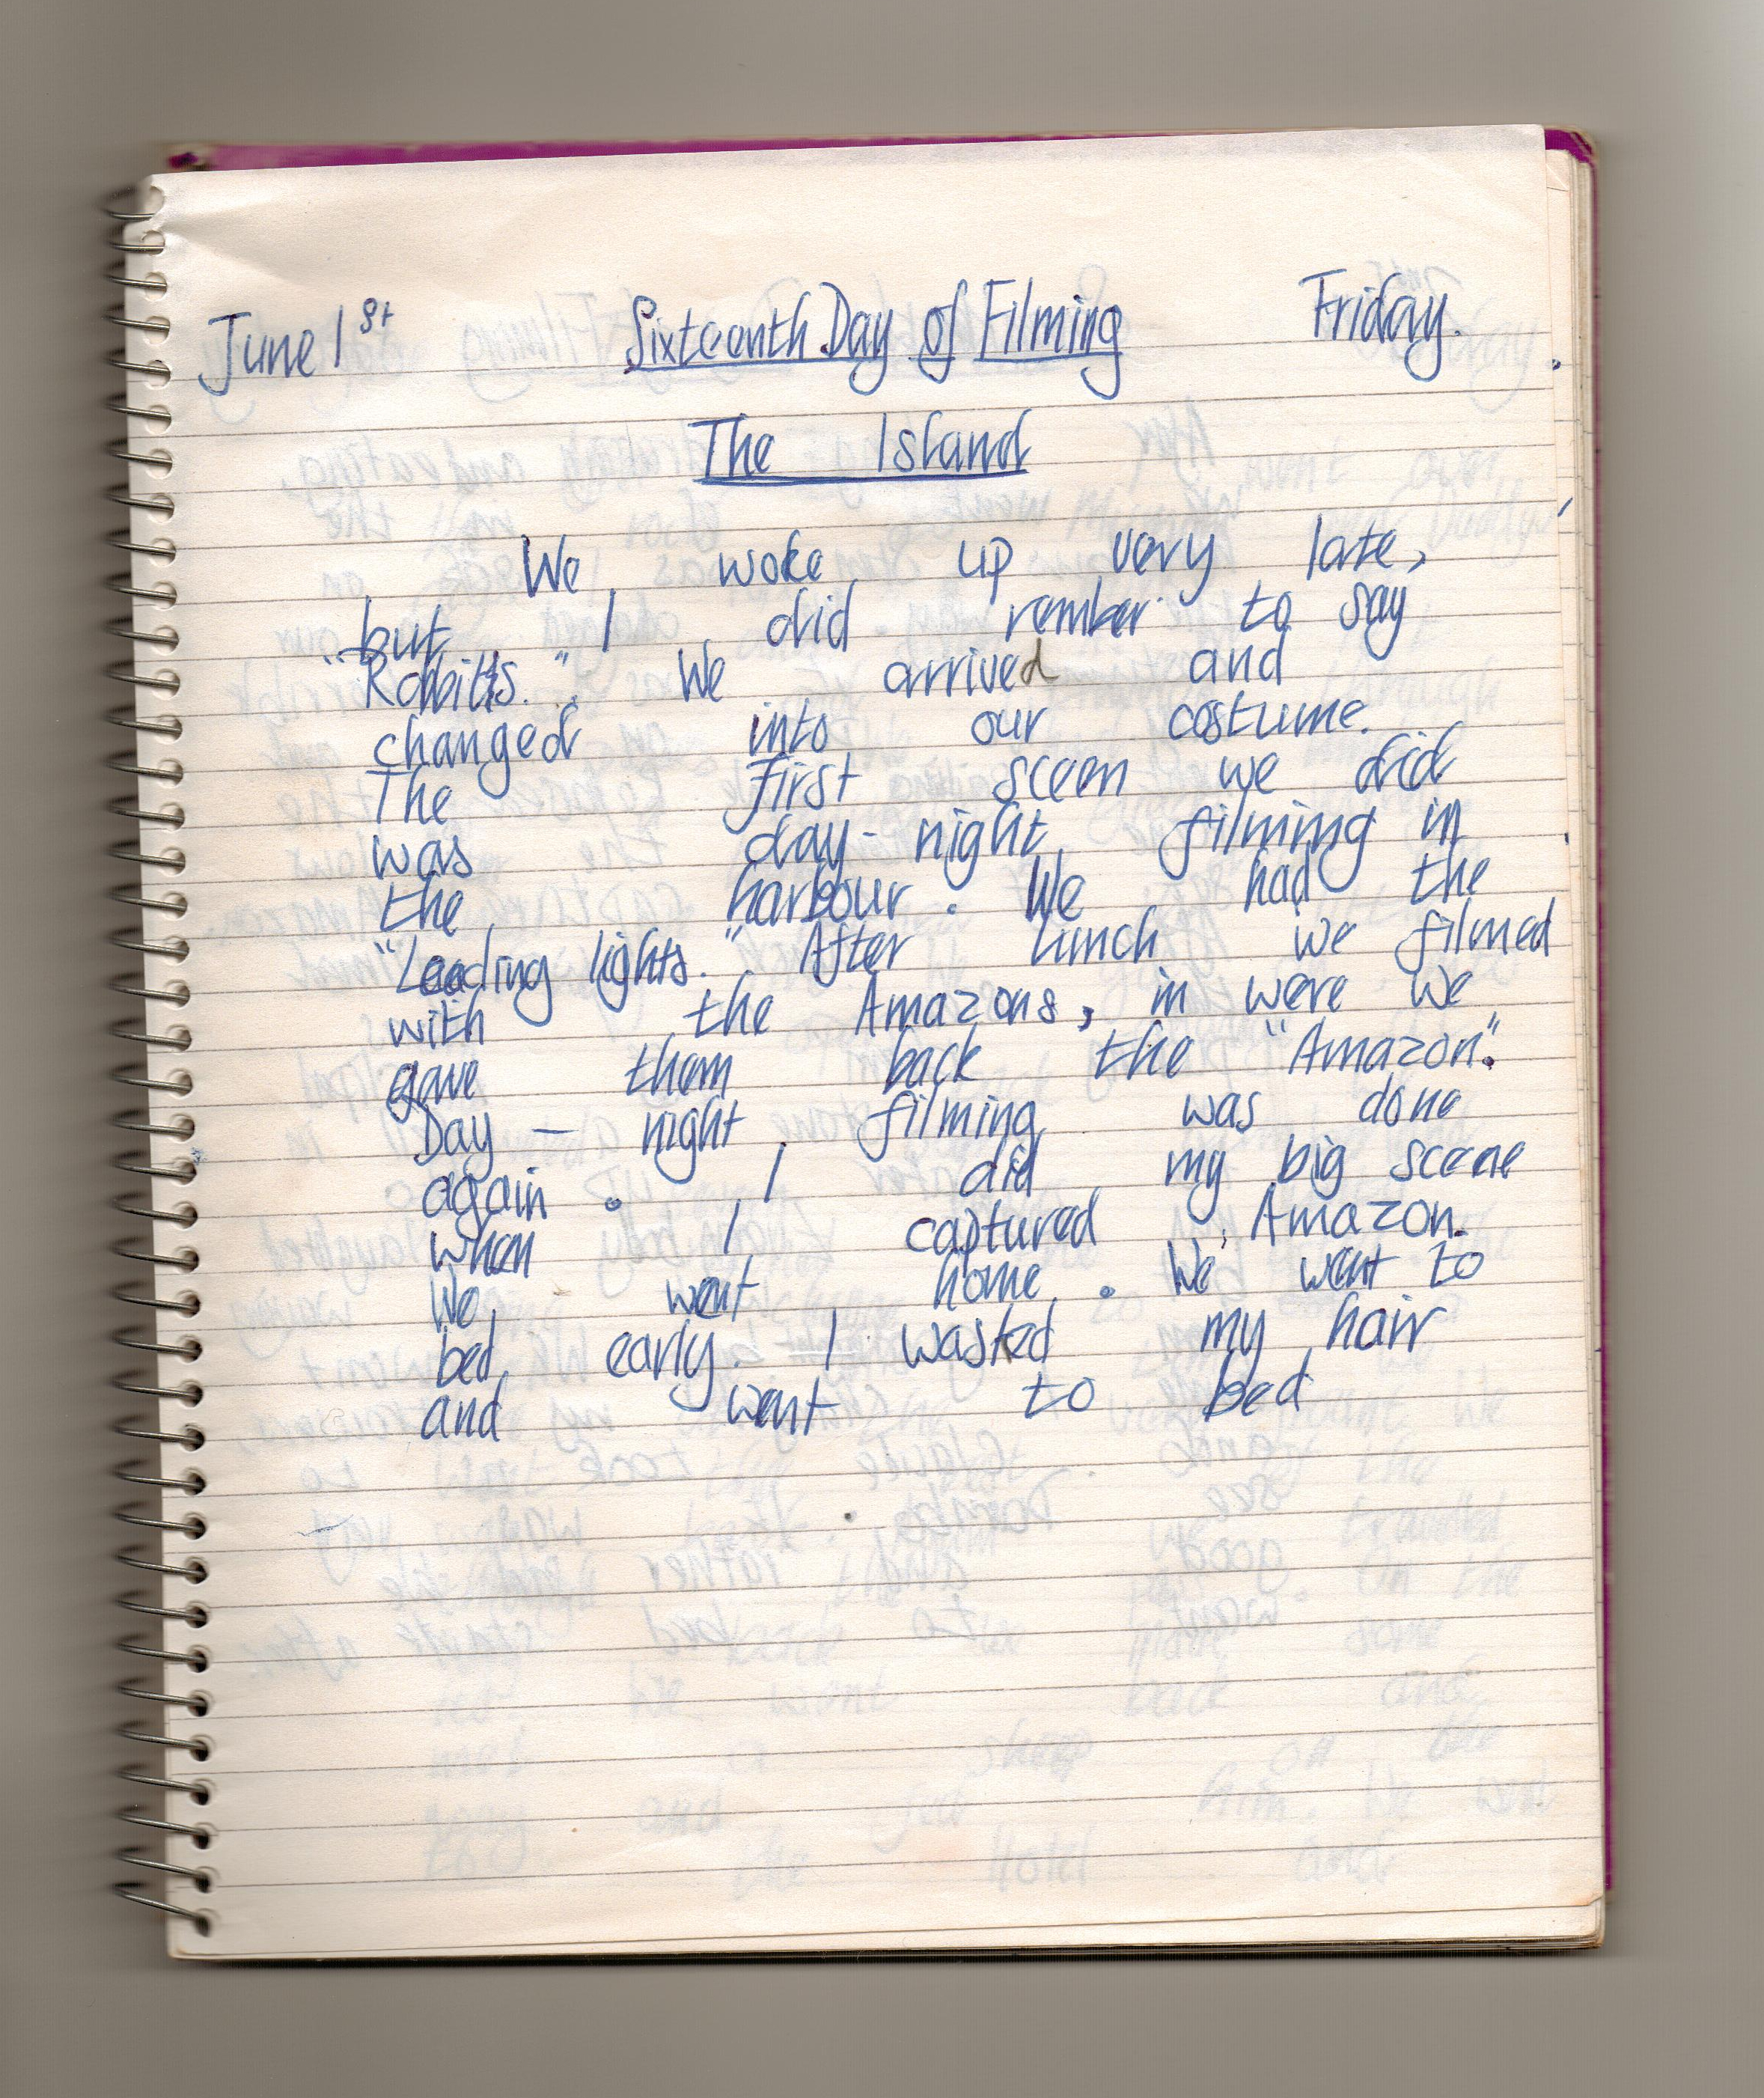 June 1st Sixteenth Day of Filming Friday.
The Island
We woke up very late,
but I did rember to say
"Rabbits." We arrived and
changed into our costume.
The first sceen we did
was day-night filming in
the harbour. We had the
"Leading lights." After lunch we filmed
with the Amazons, in were we
gave them back the "Amazon".
Day - night filming was done
again. I did my big scene
when I captured Amazon.
We went home. We went to
bed early. I washed my hair
and went to bed